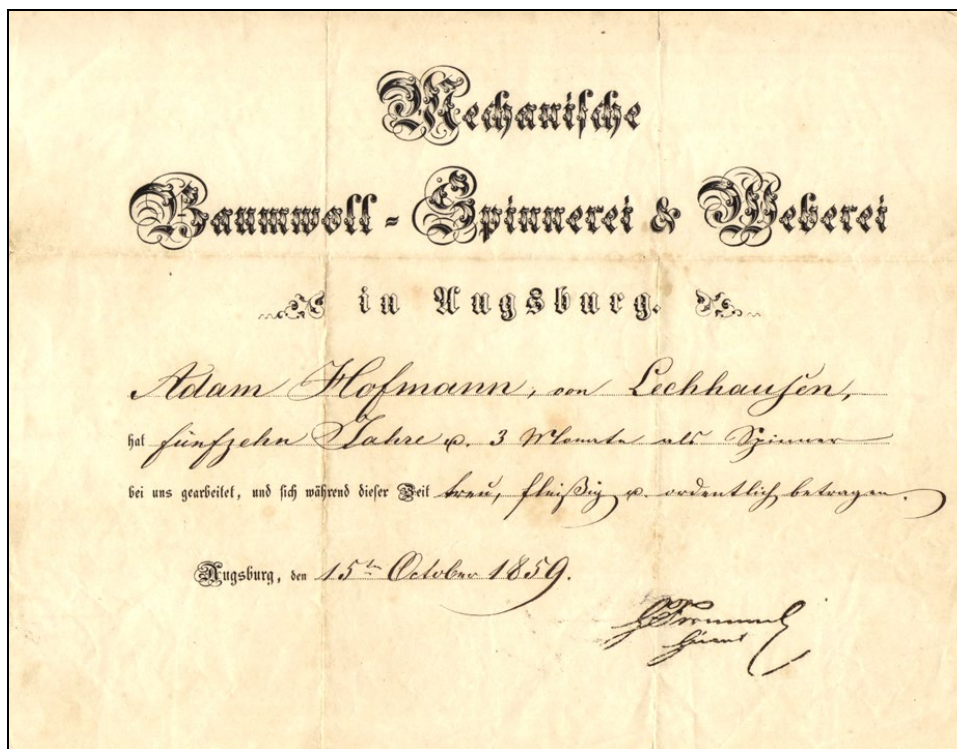 Mechanische
Baumwoll-Spinnerei & Weberei
in Augsburg.
Adam Hofmann, von Lechhausen,
hat fünfzehn Jahre u. 3 Monate als Spinner
bei uns gearbeitet, und sich während dieser Zeit treu, fleißig u. ordentlich betragen.
Augsburg, den 15ten October 1859.